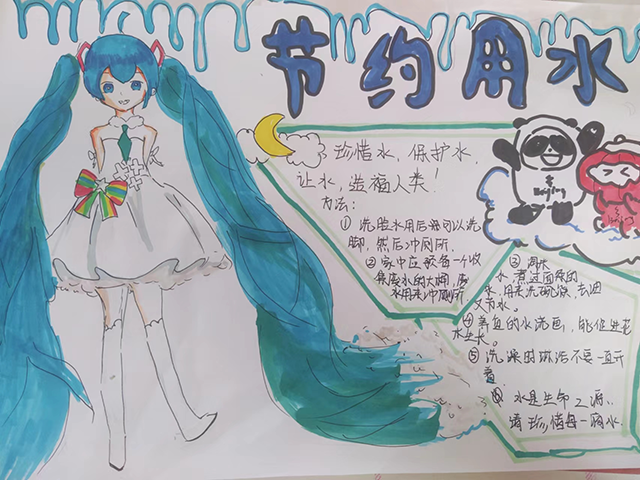 节约用水
珍惜水，保护水，
让水，造福人类！
方法：
①洗脸水用后可以洗
脚，然后冲厕所。
②家中应预备一个收
集废水的大桶，废
水用来冲厕所
Beijing
③淘米
水，煮过面条的
水，用来洗碗筷，去油
又节水。
④养鱼的水浇花，能促进花
水生长。
⑤洗澡时淋浴不要一直开
着
水是生命之源，
请珍惜每一滴水.